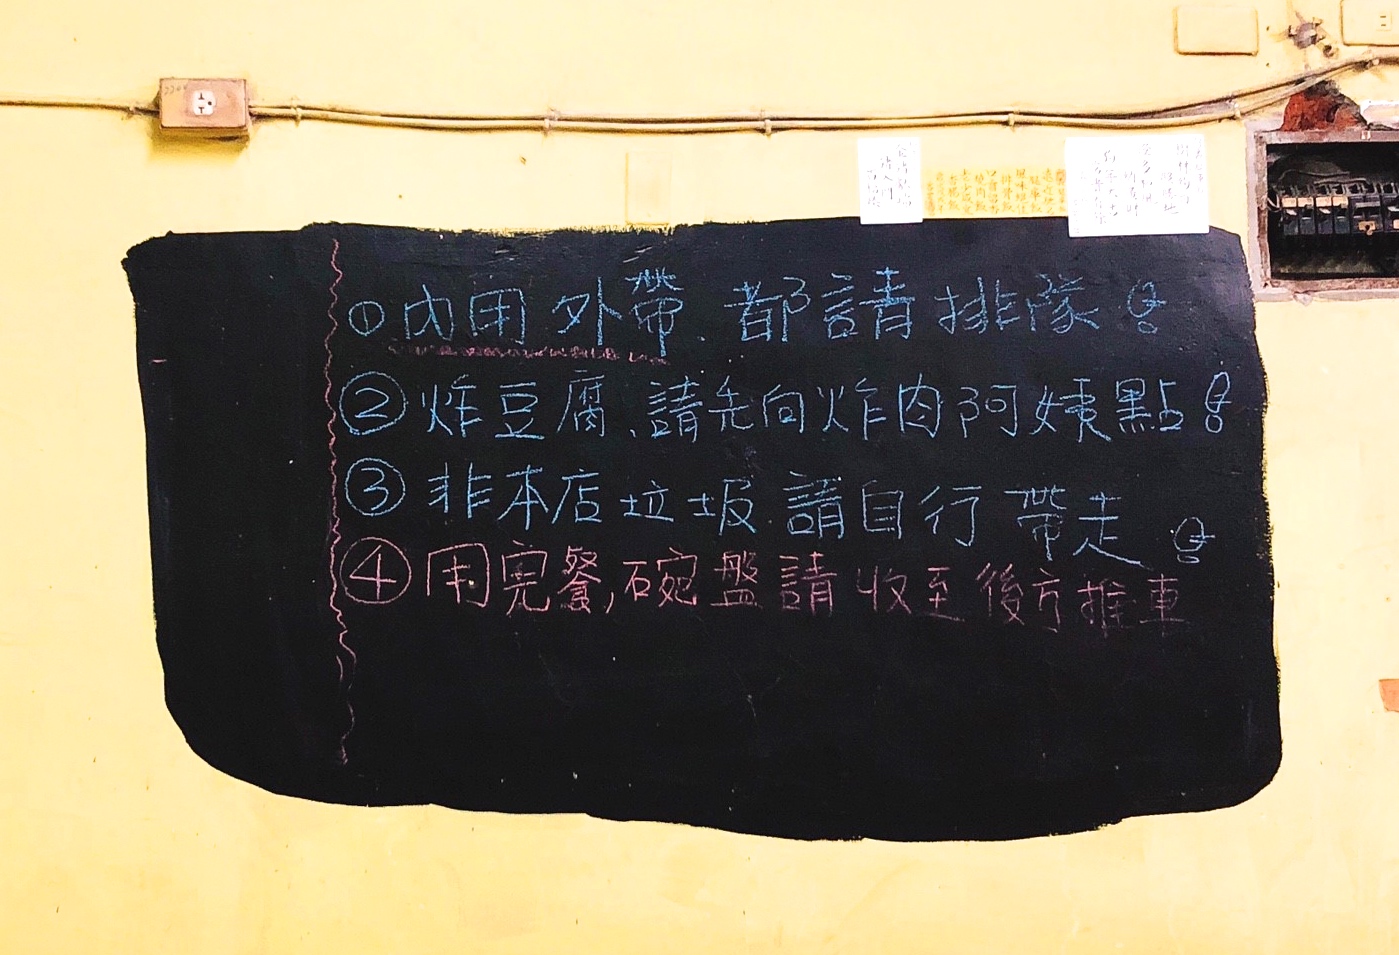 ①內用外帶、都請排隊!
②炸豆腐、請先向炸肉阿姨點!
③非本店垃圾請自行帶走!
④用完餐,碗盤請收至後方推車